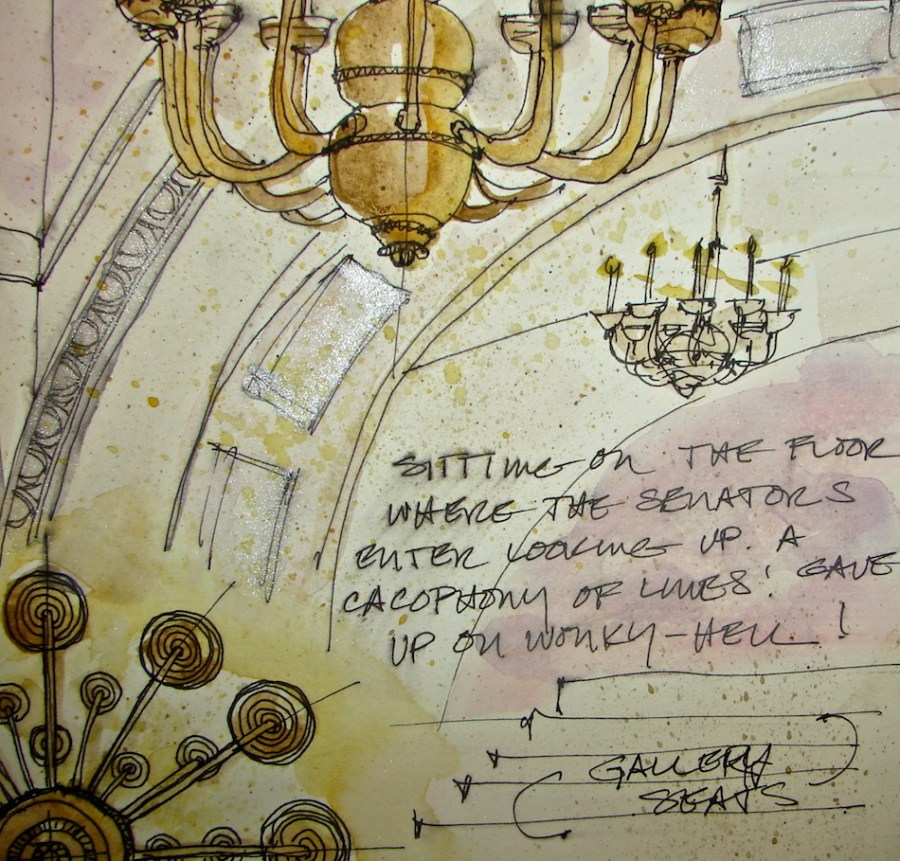 SITTING ON THE FLOOR
WHERE THE SENATORS
ENTER LOOKING UP. A
CACOPHONY OF LINES! GAVE
UP ON WONKY-HELL!
GALLERY
SEATS